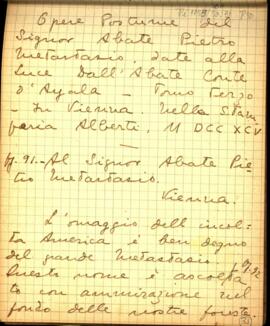 Opere Postume del
Signor Abate Pietro
Metastasio, date alla
Luce Dall'Abate Conte
D'Ayala — Tomo Terzo
— In Vienna. Nella Stam
peria Alberti, M DCC XCV
f. 91. — Al Signor Abate Pie-
tro Metastasio.
Vienna.
L'omaggio dell'incol-
ta America è ben degno
del grande Metastasio.
f. 92
Questo nome è ascolta
to con ammirazione nel
fondo delle nostre foreste.